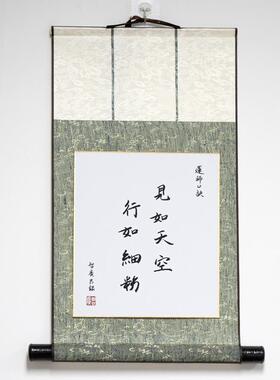 蓮師口訣
見如天空
行如細粉
智廣敬錄